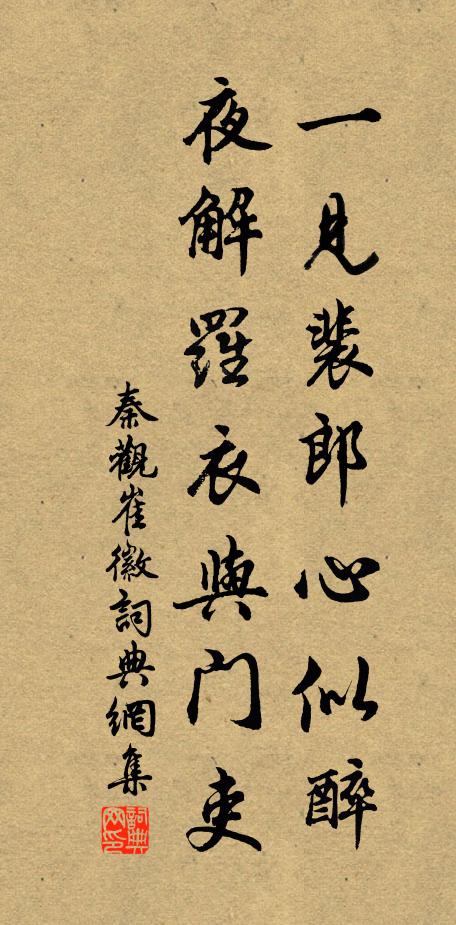 一見裴郎心似醉
夜解羅衣與門吏
秦觀崔徽詞典網集
詞典網印